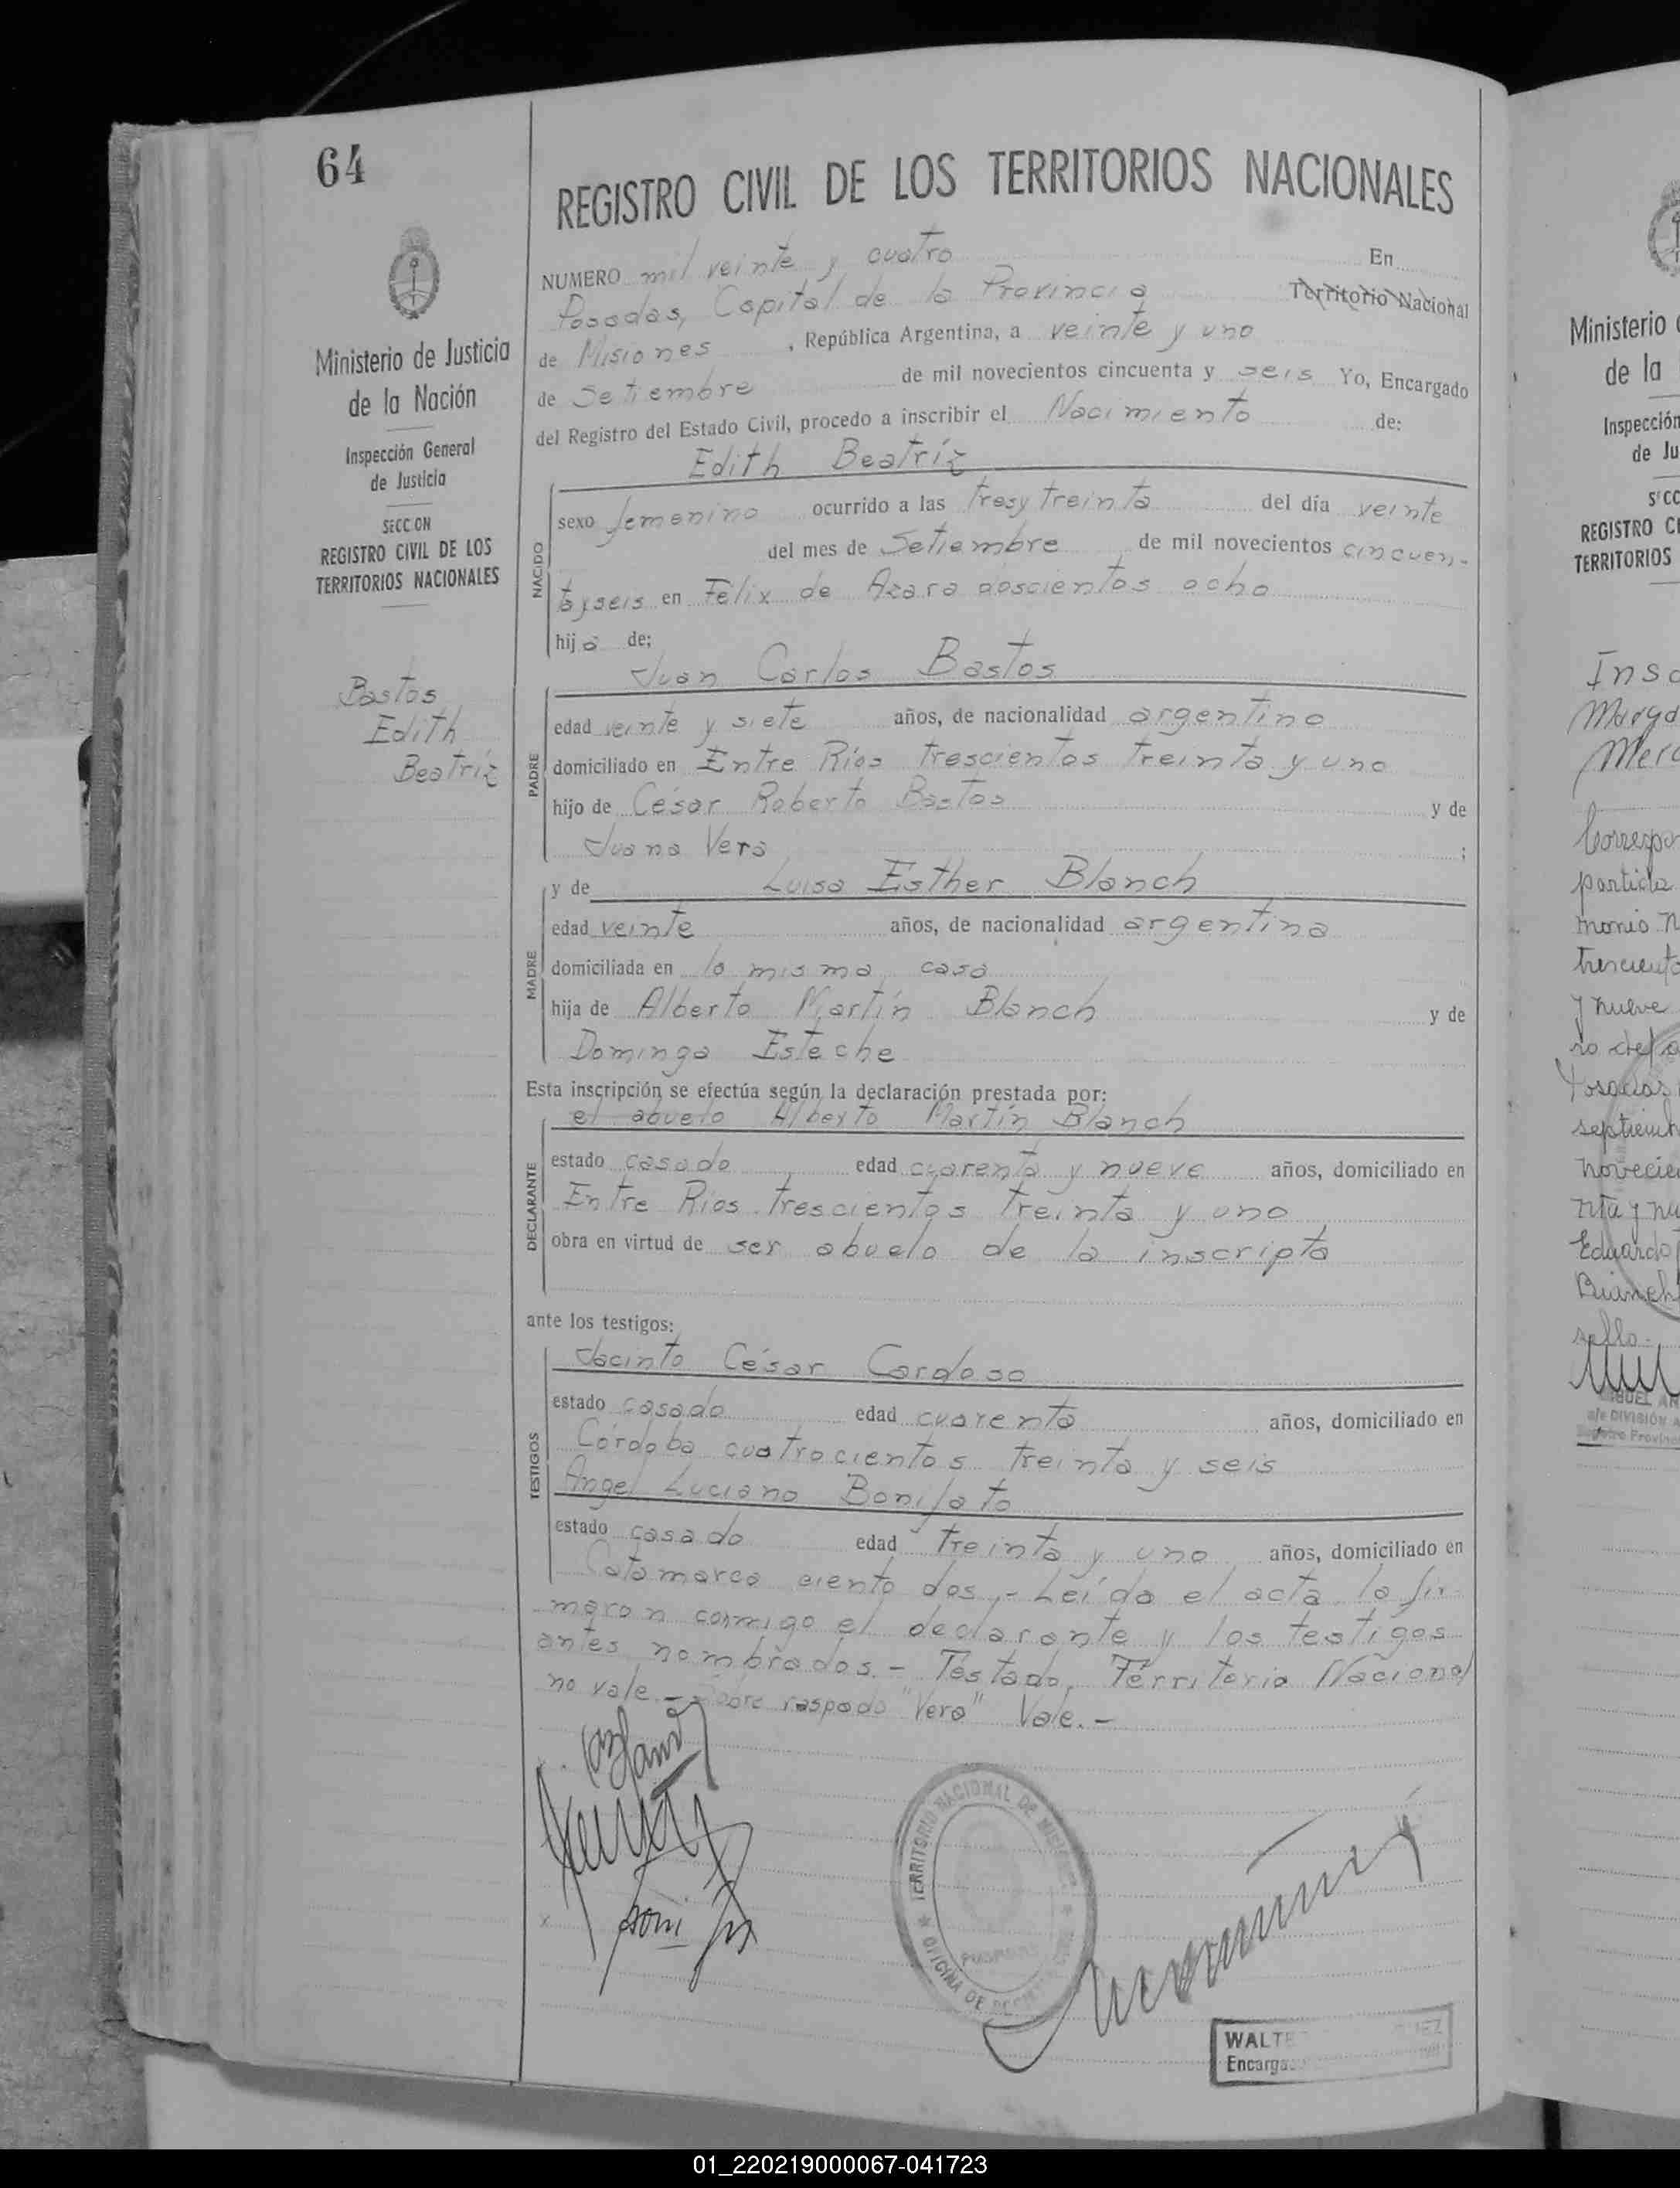 64
REGISTRO CIVIL DE LOS TERRITORIOS NACIONALES
NUMERO mil veinte y cuatro En
Posadas, Capital de la Provincia Territorio Nacional
de Misiones, República Argentina, a veinte y uno
de Setiembre de mil novecientos cincuenta y seis Yo, Encargado
del Registro del Estado Civil, procedo a inscribir el Nacimiento de:
Edith Beatríz
NACIDO
sexo femenino ocurrido a las tres y treinta del día veinte
del mes de Setiembre de mil novecientos cincuen-
ta y seis en Félix de Azara doscientos ocho
hija de;
Juan Carlos Bastos
PADRE
edad veinte y siete años, de nacionalidad argentino
domiciliado en Entre Ríos trescientos treinta y uno
hijo de César Roberto Bastos y de
Juana Vera ;
y de Luisa Esther Blanch
MADRE
edad veinte años, de nacionalidad argentina
domiciliada en la misma casa
hija de Alberto Martín Blanch y de
Dominga Esteche
Esta inscripción se efectúa según la declaración prestada por:
el abuelo Alberto Martín Blanch
DECLARANTE
estado casado edad cuarenta y nueve años, domiciliado en
Entre Ríos trescientos treinta y uno
obra en virtud de ser abuelo de la inscripta
ante los testigos:
Jacinto César Cardoso
TESTIGOS
estado casado edad cuarenta años, domiciliado en
Córdoba cuatrocientos treinta y seis
Angel Luciano Bonifato
estado casado edad treinta y uno años, domiciliado en
Catamarca ciento dos.- Leída el acta la fir
maron conmigo el declarante y los testigos
antes nombrados.- Testado, Territorio Nacional
no vale.- Sobre raspado "Vera" Vale.-
TERRITORIO NACIONAL DE MISIONES
OFICINA DE
WALTE
Encarga
Ministerio de Justicia
de la Nación
Inspección General
de Justicia
SECCION
REGISTRO CIVIL DE LOS
TERRITORIOS NACIONALES
Bastos
Edith
Beatríz
Ministerio
de la
Inspección
de Ju
REGISTRO CI
TERRITORIOS
Insc
Merc
Correspon
partida
monio N
trescient
y nueve
septiemb
novecie
nta y nu
Eduardo
sello.
01_220219000067-041723